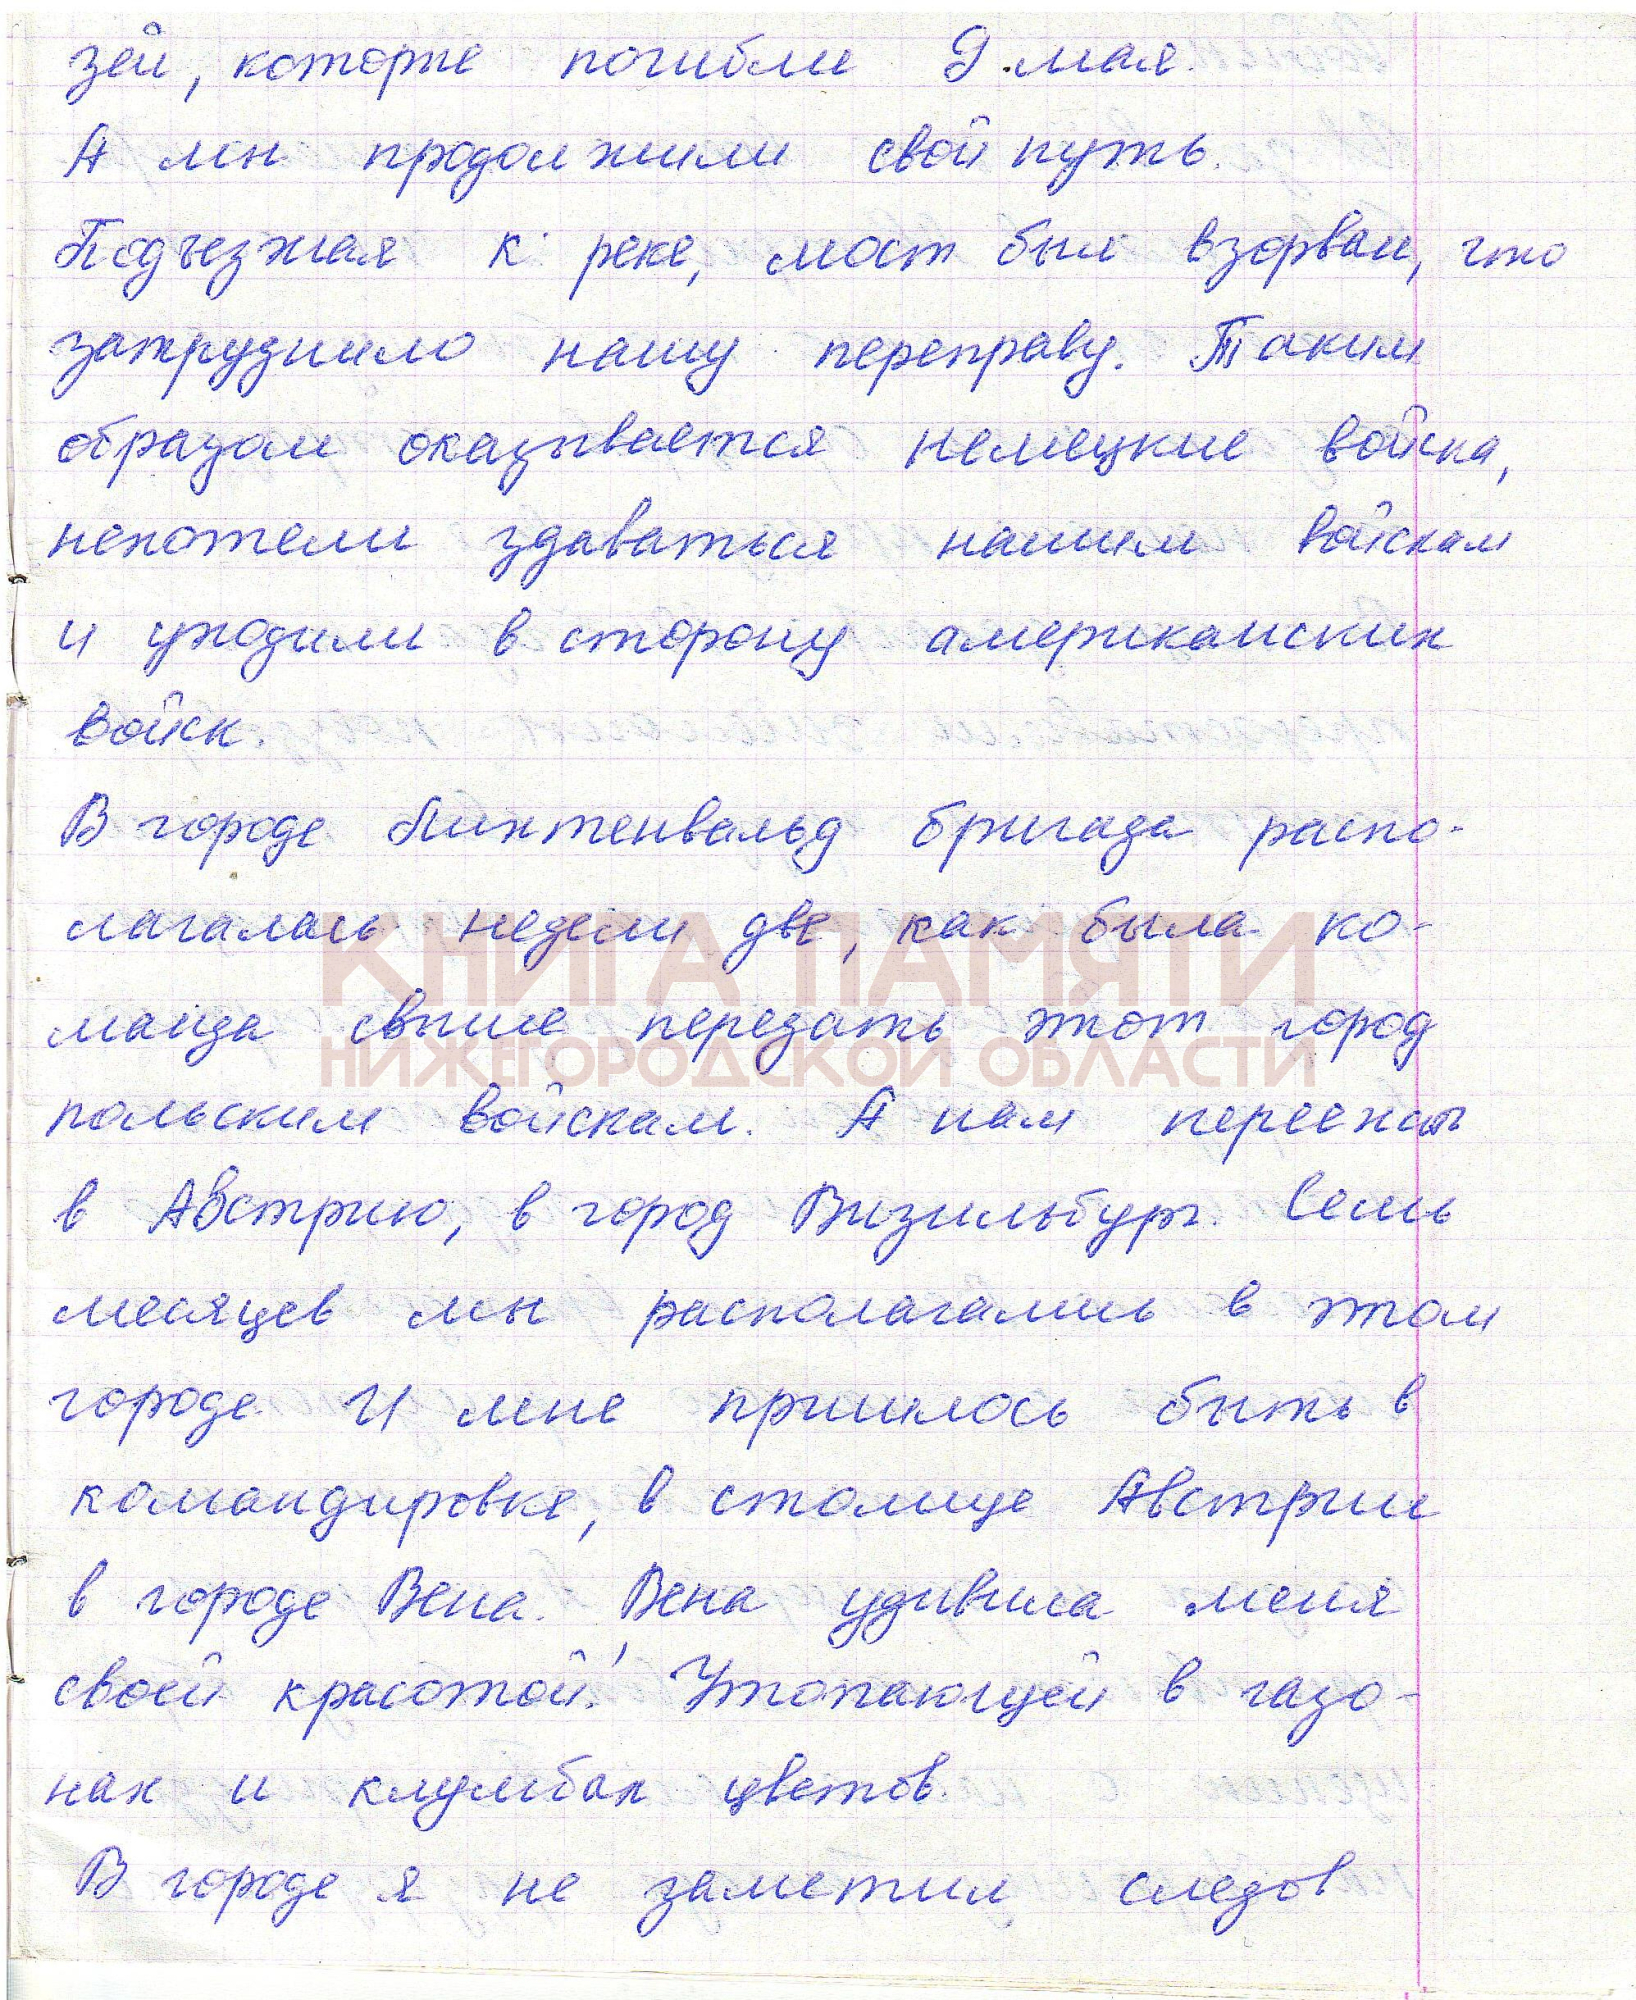 зей, которые погибли 9 мая.
А мы продолжили свой путь.
Подъезжая к реке, мост был взорван, что
затруднило нашу переправу. Таким
образом оказывается немецкие войска,
нехотели здаваться нашим войскам
и уходили в сторону американских
войск.
В городе Лихтенвальд бригада распо-
лагалась недели две, как была ко-
КНИГА ПАМЯТИ
манда свыше передать этот город
НИЖЕГОРОДСКОЙ ОБЛАСТИ
польским войскам. А нам переехать
в Австрию, в город Визильбург. Семь
месяцев мы располагались в этом
городе. И мне пришлось быть в
командировке, в столице Австрии
в городе Вена. Вена удивила меня
своей красотой! Утопающей в газо-
нах и клумбах цветов.
В городе я не заметил следов